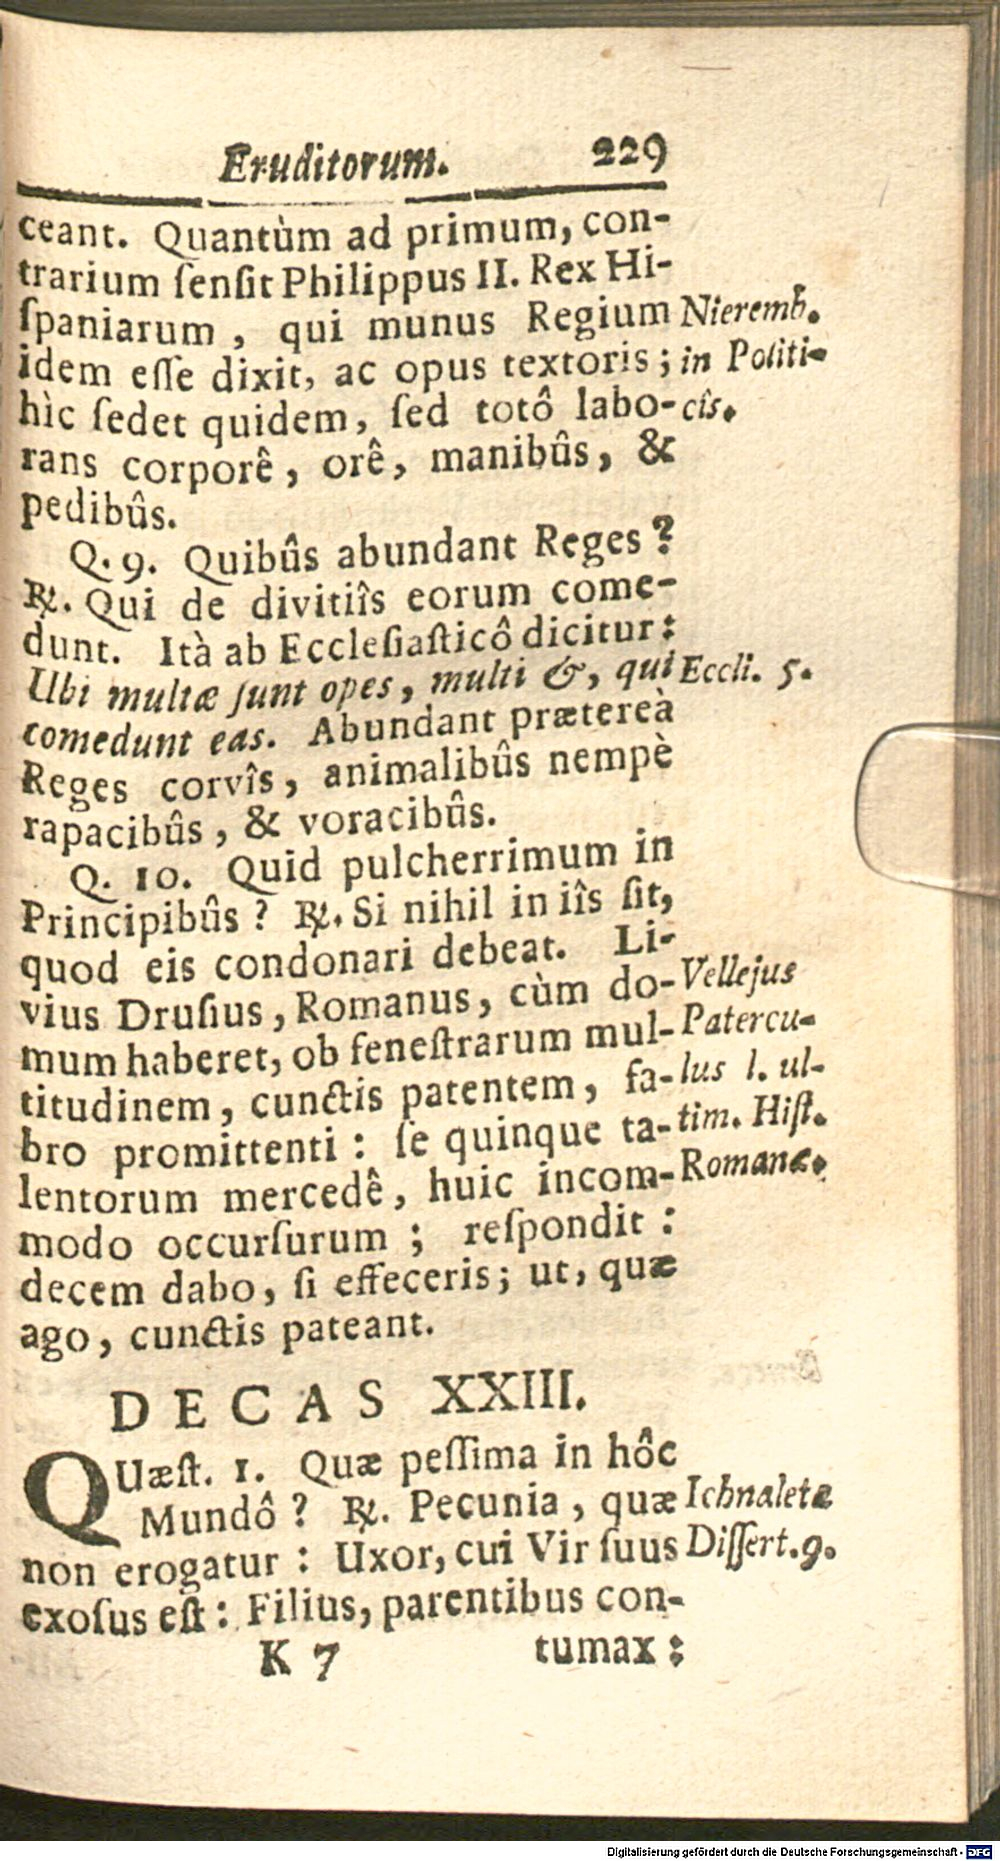 Eruditorum. 229
ceant. Quantùm ad primum, con-
trarium ſenſit Philippus II. Rex Hi-
ſpaniarum, qui munus Regium
Nieremb.
idem eſſe dixit, ac opus textoris;
in Politi-
hìc ſedet quidem, ſed totô labo-
cîs.
rans corporê, orê, manibûs, &
pedibûs.
Q. 9. Quibûs abundant Reges?
℞. Qui de divitiîs eorum come-
dunt. Ità ab Eccleſiaſticô dicitur:
Ubi multæ ſunt opes, multi &, qui
Eccli. 5.
comedunt eas. Abundant prætereà
Reges corvîs, animalibûs nempè
rapacibûs, & voracibûs.
Q. 10. Quid pulcherrimum in
Principibûs? ℞. Si nihil in iîs ſit,
quod eis condonari debeat. Li-
vius Druſius, Romanus, cùm do-
Vellejus
mum haberet, ob feneſtrarum mul-
Patercu-
titudinem, cunctis patentem, fa-
lus l. ul-
bro promittenti: ſe quinque ta-
tim. Hiſt.
lentorum mercedê, huic incom-
Romanæ.
modo occurſurum; reſpondit:
decem dabo, ſi effeceris; ut, quæ
ago, cunctis pateant.
DECAS XXIII.
QUæſt. 1. Quæ peſſima in hôc
Mundô? ℞. Pecunia, quæ
Ichnaletæ
non erogatur: Uxor, cui Vir ſuus
Diſſert. 9.
exoſus eſt: Filius, parentibus con-
K 7 tumax:
Digitalisierung gefördert durch die Deutsche Forschungsgemeinschaft - DFG